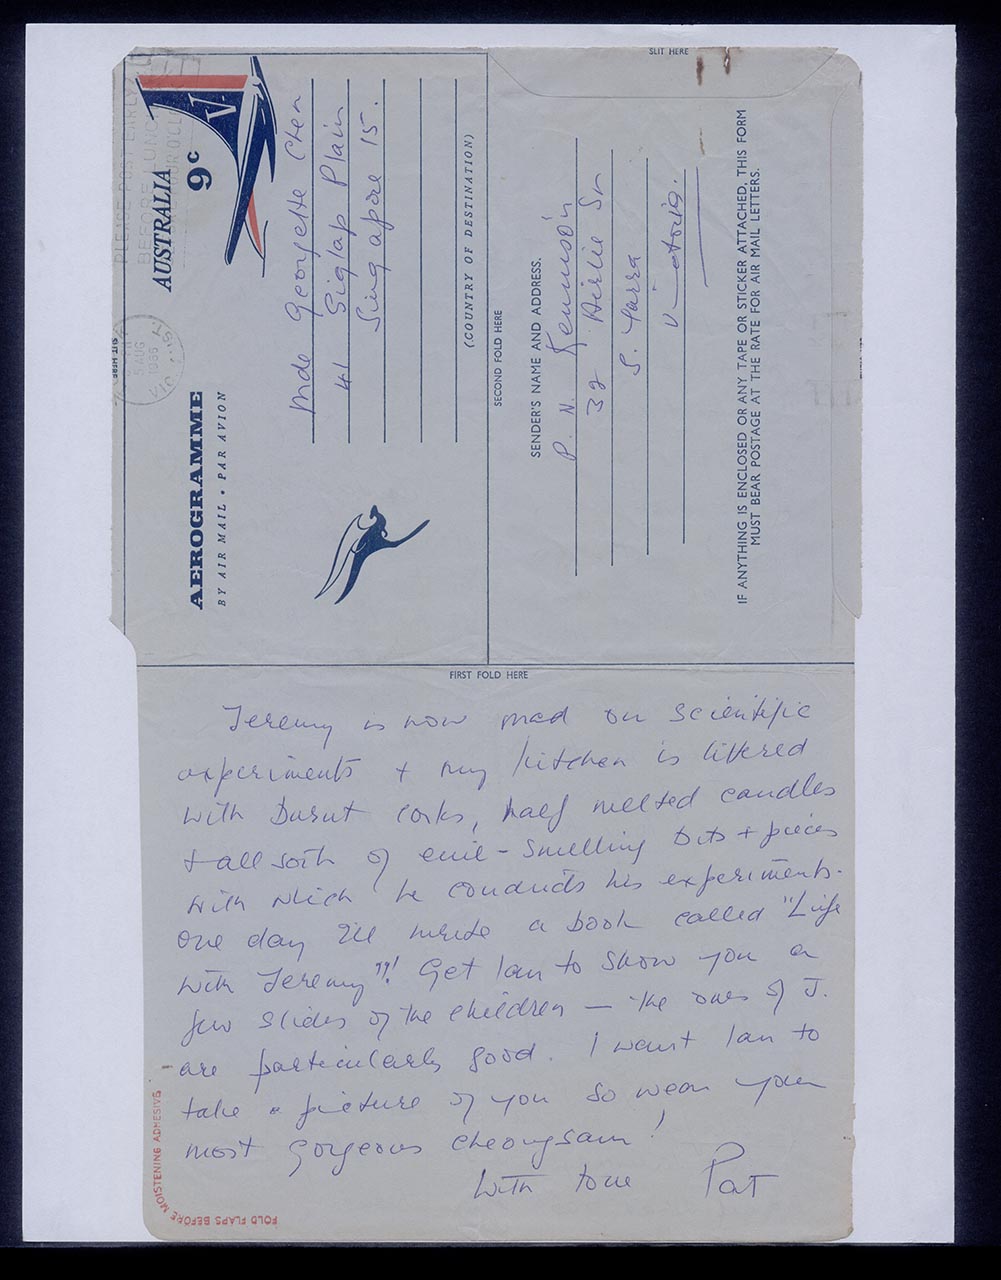 SLIT HERE
PLEASE POST EARLY
BEFORE LUNCH
AUSTRALIA
9c
V
5 AUG
1966
VIC
AEROGRAMME
BY AIR MAIL • PAR AVION
Mde Georgette Chen
41 Siglap Plain
Singapore 15.
(COUNTRY OF DESTINATION)
SECOND FOLD HERE
SENDER'S NAME AND ADDRESS.
P. N. Kennison
32 Airlie St
S. Yarra
Victoria.
IF ANYTHING IS ENCLOSED OR ANY TAPE OR STICKER ATTACHED, THIS FORM
MUST BEAR POSTAGE AT THE RATE FOR AIR MAIL LETTERS.
FIRST FOLD HERE
Jeremy is now mad on scientific
experiments + my kitchen is littered
with burnt corks, half melted candles
+ all sorts of evil-smelling bits + pieces
with which he conducts his experiments.
One day I'll write a book called "Life
with Jeremy"!! Get Ian to show you a
few slides of the children — the ones of J.
are particularly good. I want Ian to
take a picture of you so wear your
most gorgeous cheongsam!
With love Pat
FOLD FLAPS BEFORE MOISTENING ADHESIVE